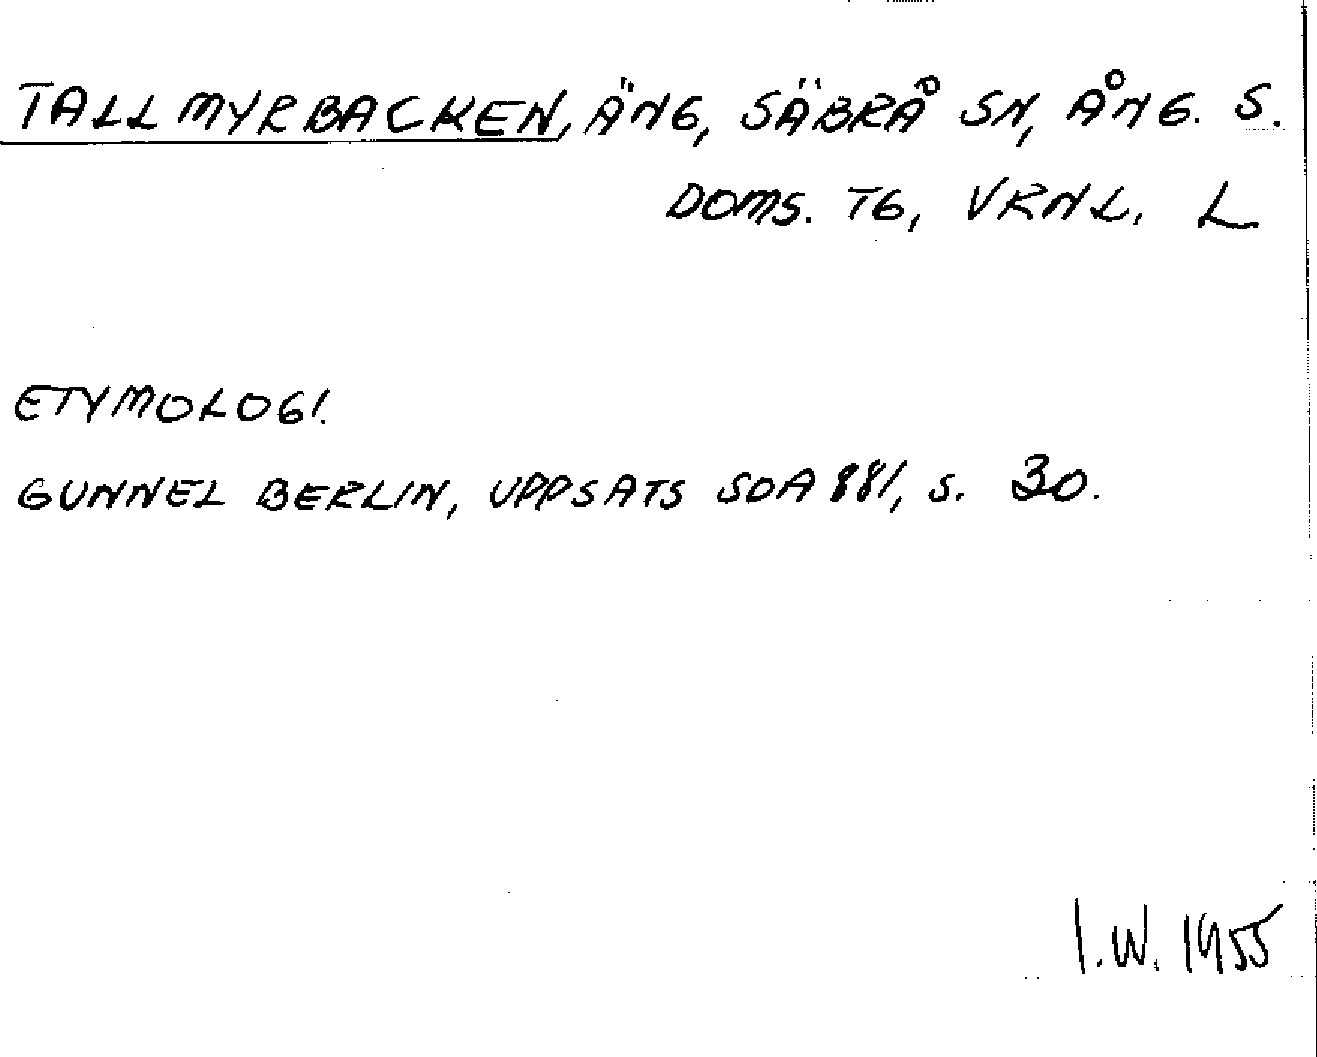 TALLMYRBACKEN, ÄNG, SÄBRÅ SN, ÅNG. S.
DOMS. TG, VRNL. L
ETYMOLOGI.
GUNNEL BERLIN, UPPSATS SOA 881, S. 30.
I.W. 1955